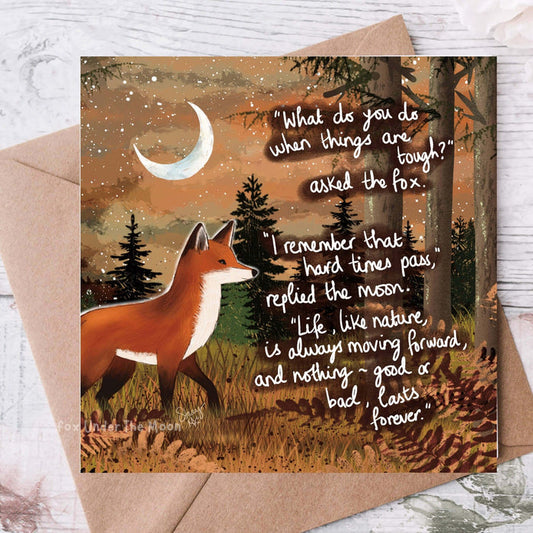 "What do you do
when things are
tough?"
asked the fox.
"I remember that
hard times pass,"
replied the moon.
"Life, like nature,
is always moving forward,
and nothing ~ good or
bad, lasts
forever."
fox Under The Moon